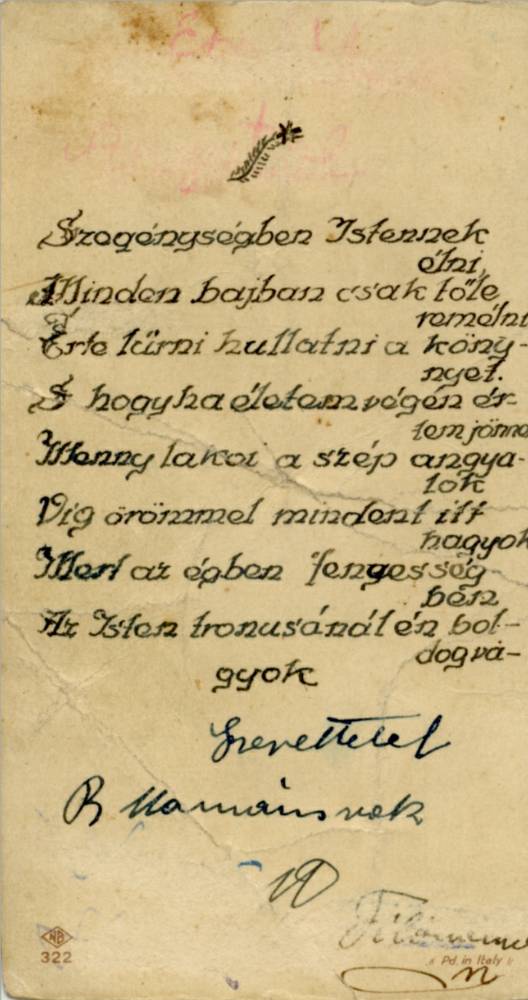 Szegénységben Istennek
élni,
Minden bajban csak tőle
remélni
Érte tűrni hullatni a köny-
nyet.
S hogyha életem végén ér-
tem jönne
Menny lakói a szép angya-
lok
Víg örömmel mindent itt
hagyok
Mert az égben fényesség-
ben
Az Isten tronusánál én bol-
dog va-
gyok
Szeretettel
B Mamánsnak
NB
322
Pd. in Italy